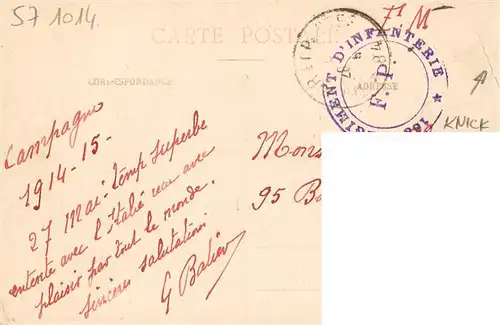 571014
71 M
CARTE POSTALE
CORRESPONDANCE
ADRESSE
D'INFANTERIE
F. P.
KNICK
Campagne
1914-15-
27 Mai: temp superbe
entente avec l'Italie recu avec
plaisir par tout le monde.
Sincères salutations
G Balier
Mons
95 Ba